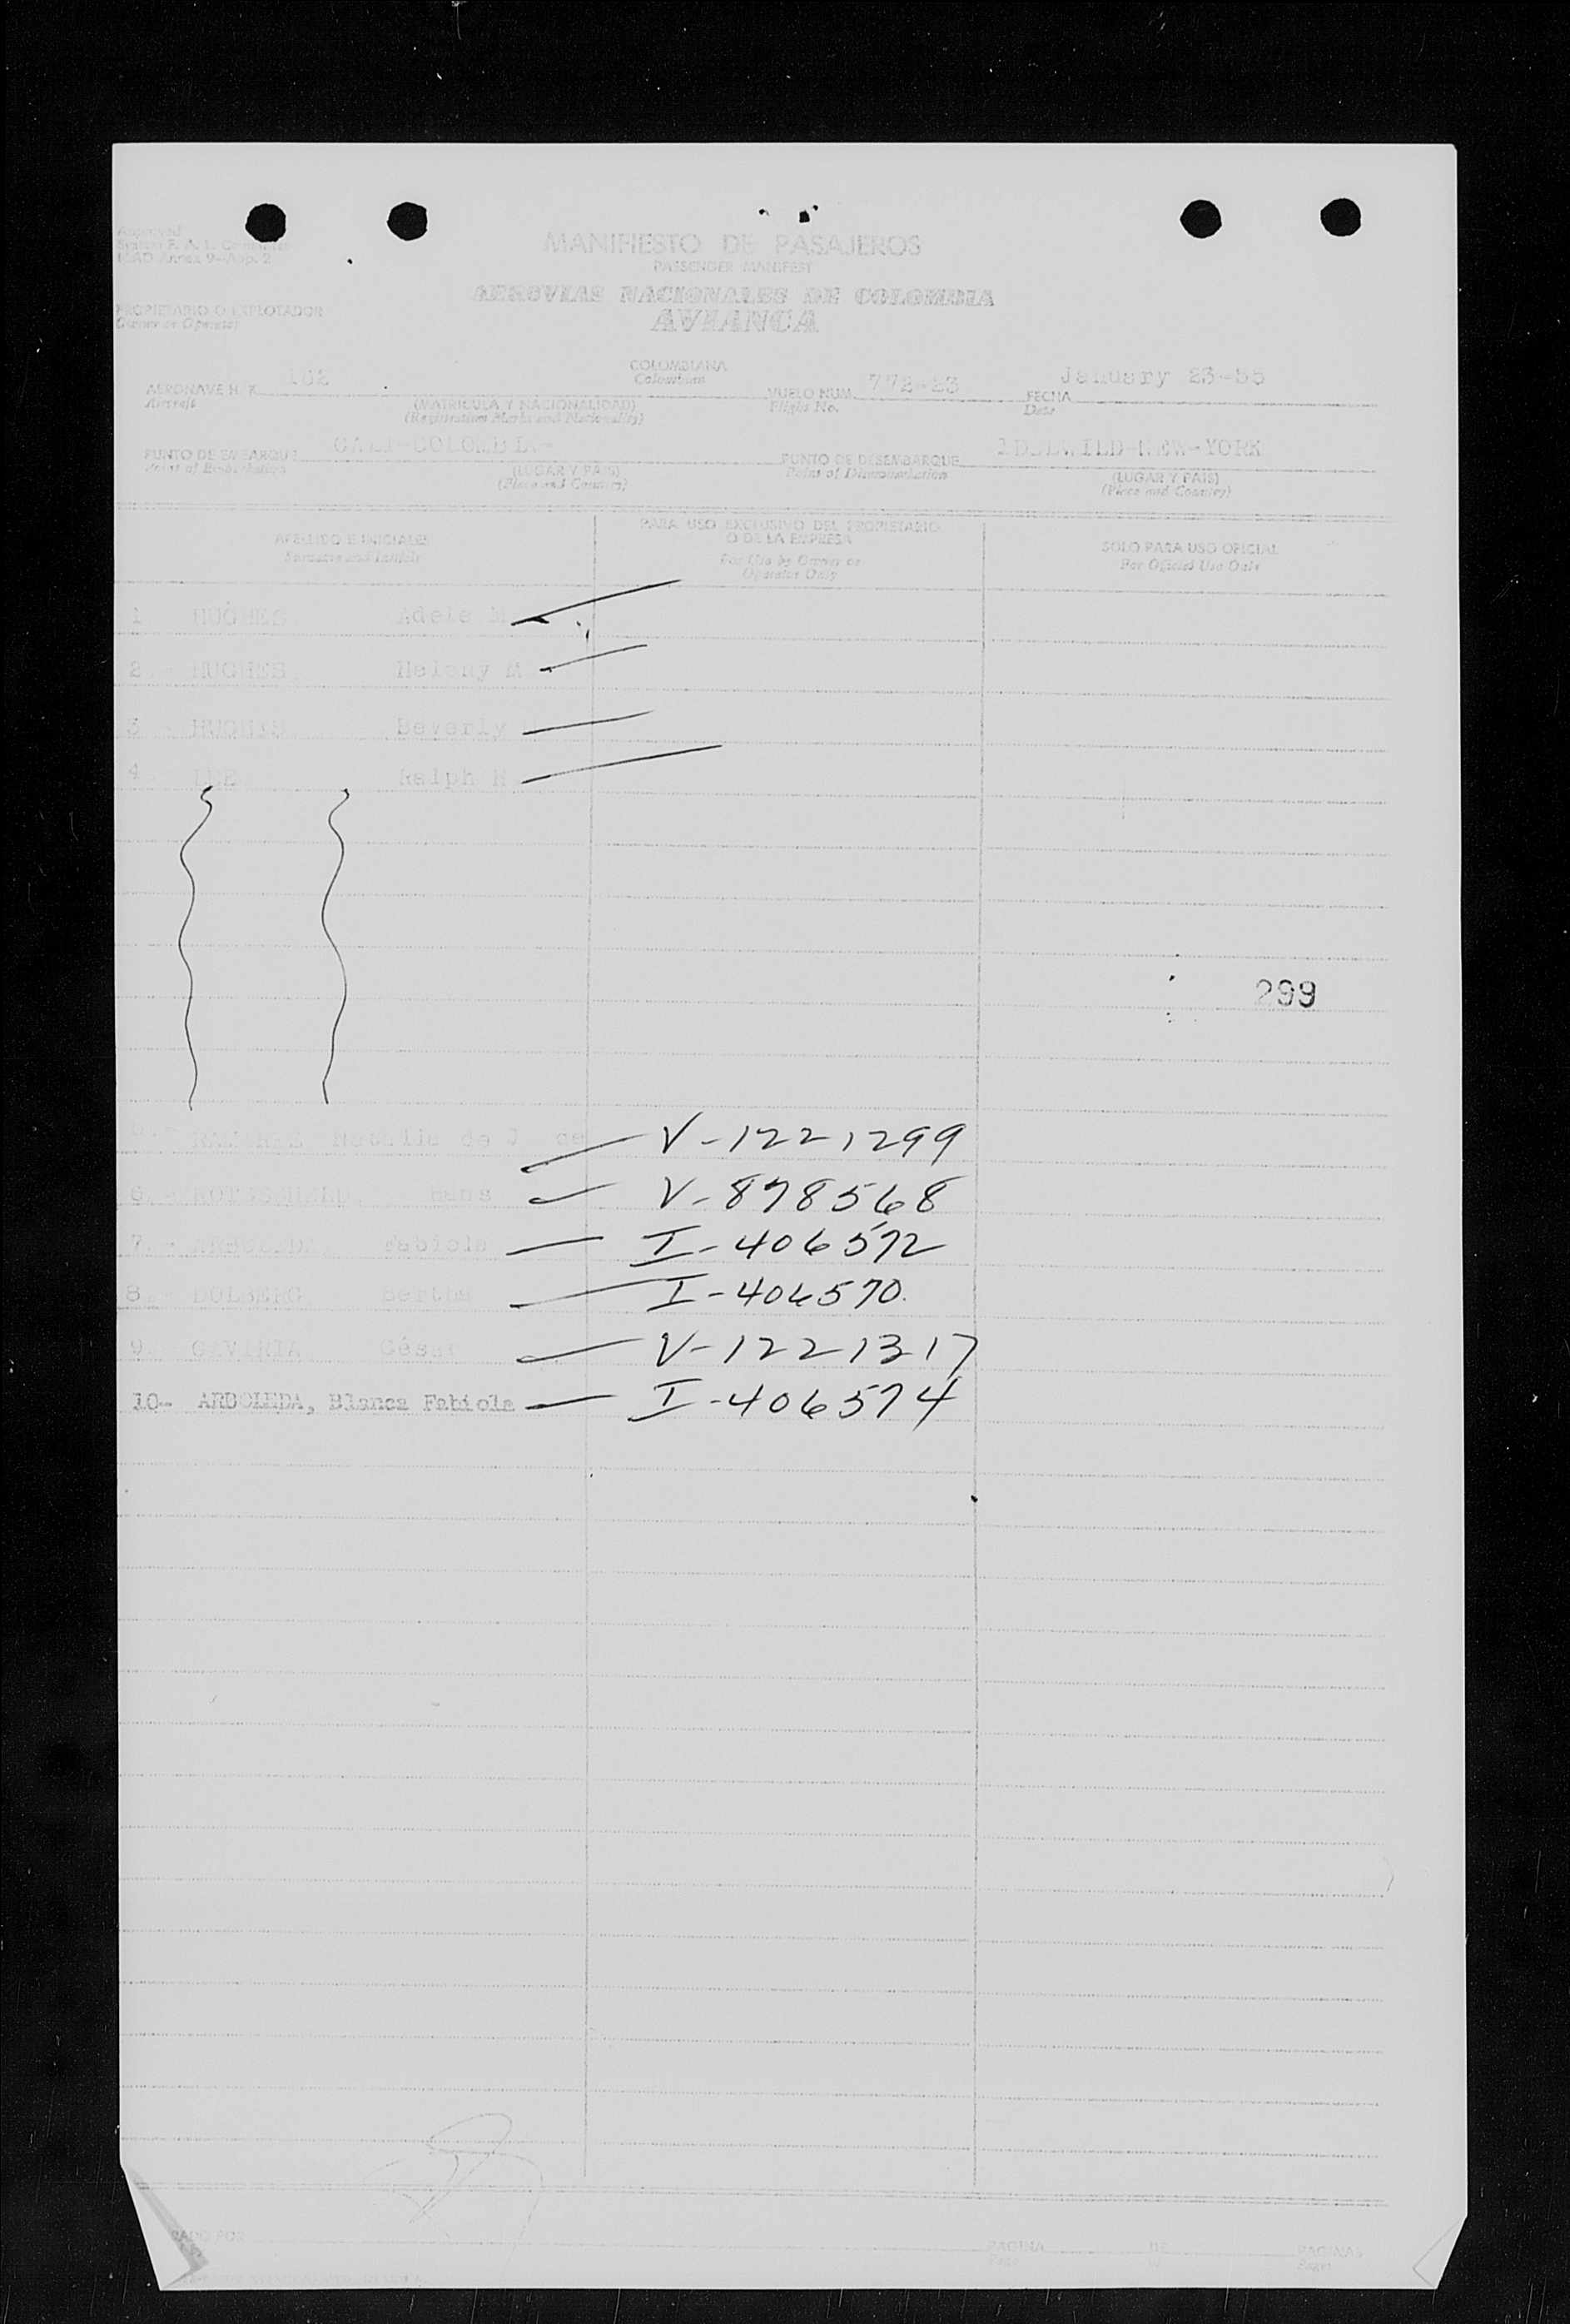 MANIFIESTO DE PASAJEROS
PASSENGER MANIFEST
AEROVIAS NACIONALES DE COLOMBIA
AVIANCA
PROPIETARIO O EXPLOTADOR
Owner or Operator
COLOMBIANA
Colombian
AERONAVE H. K. 162 VUELO NUM. 772-23 FECHA January 23-55
Aircraft (MATRICULA Y NACIONALIDAD) Flight No. Date
(Registration Marks and Nationality)
PUNTO DE EMBARQUE CALI-COLOMBIA PUNTO DE DESEMBARQUE IDLEWILD-NEW-YORK
Point of Embarkation (LUGAR Y PAIS) Point of Disembarkation (LUGAR Y PAIS)
(Place and Country) (Place and Country)
APELLIDO E INICIALES PARA USO EXCLUSIVO DEL PROPIETARIO O DE LA EMPRESA SOLO PARA USO OFICIAL
Surname and Initials For Use by Owner or Operator Only For Official Use Only
1 HUGHES Adele M
2.- HUGHES Melony M
3.- HUGHES Beverly
4 LEE Ralph H
299
de J de V-1221299
6.- Hans V-878568
7.- Fabiola I-406572
8.- DOLBERG Bertha I-406570.
9 GAVIRIA César V-1221317
10- ARBOLEDA, Blanca Fabiola I-406574
PAGINA DE PAGINAS